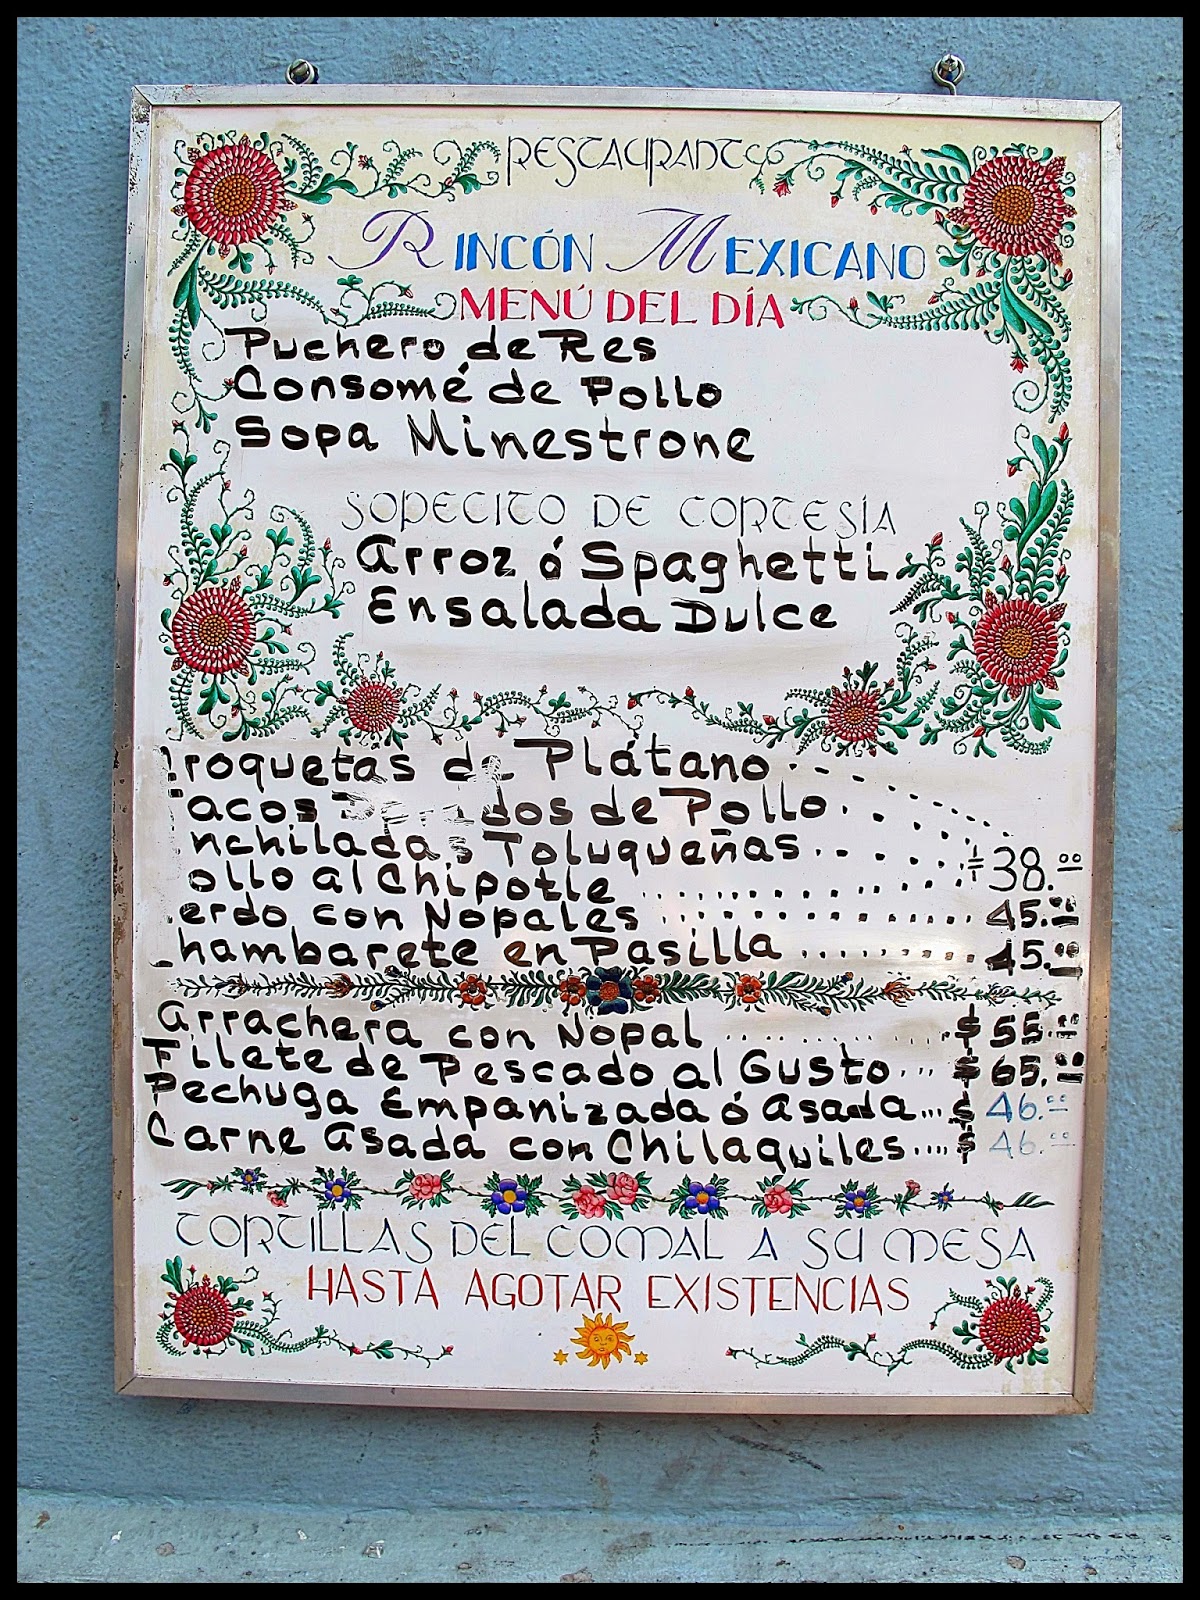 RESTAURANTE
RINCÓN MEXICANO
MENÚ DEL DÍA
Puchero de Res
Consomé de Pollo
Sopa Minestrone
SOPECITO DE CORTESÍA
Arroz ó Spaghetti
Ensalada Dulce
roquetas de Plátano
acos dos de Pollo
nchiladas Toluqueñas
ollo al Chipotle 38.00
erdo con Nopales 45.00
hambarete en Pasilla 45.00
Arrachera con Nopal $55.00
Filete de Pescado al Gusto $65.00
Pechuga Empanizada ó Asada $46.00
Carne Asada con Chilaquiles $46.00
TORTILLAS DEL COMAL A SU MESA
HASTA AGOTAR EXISTENCIAS